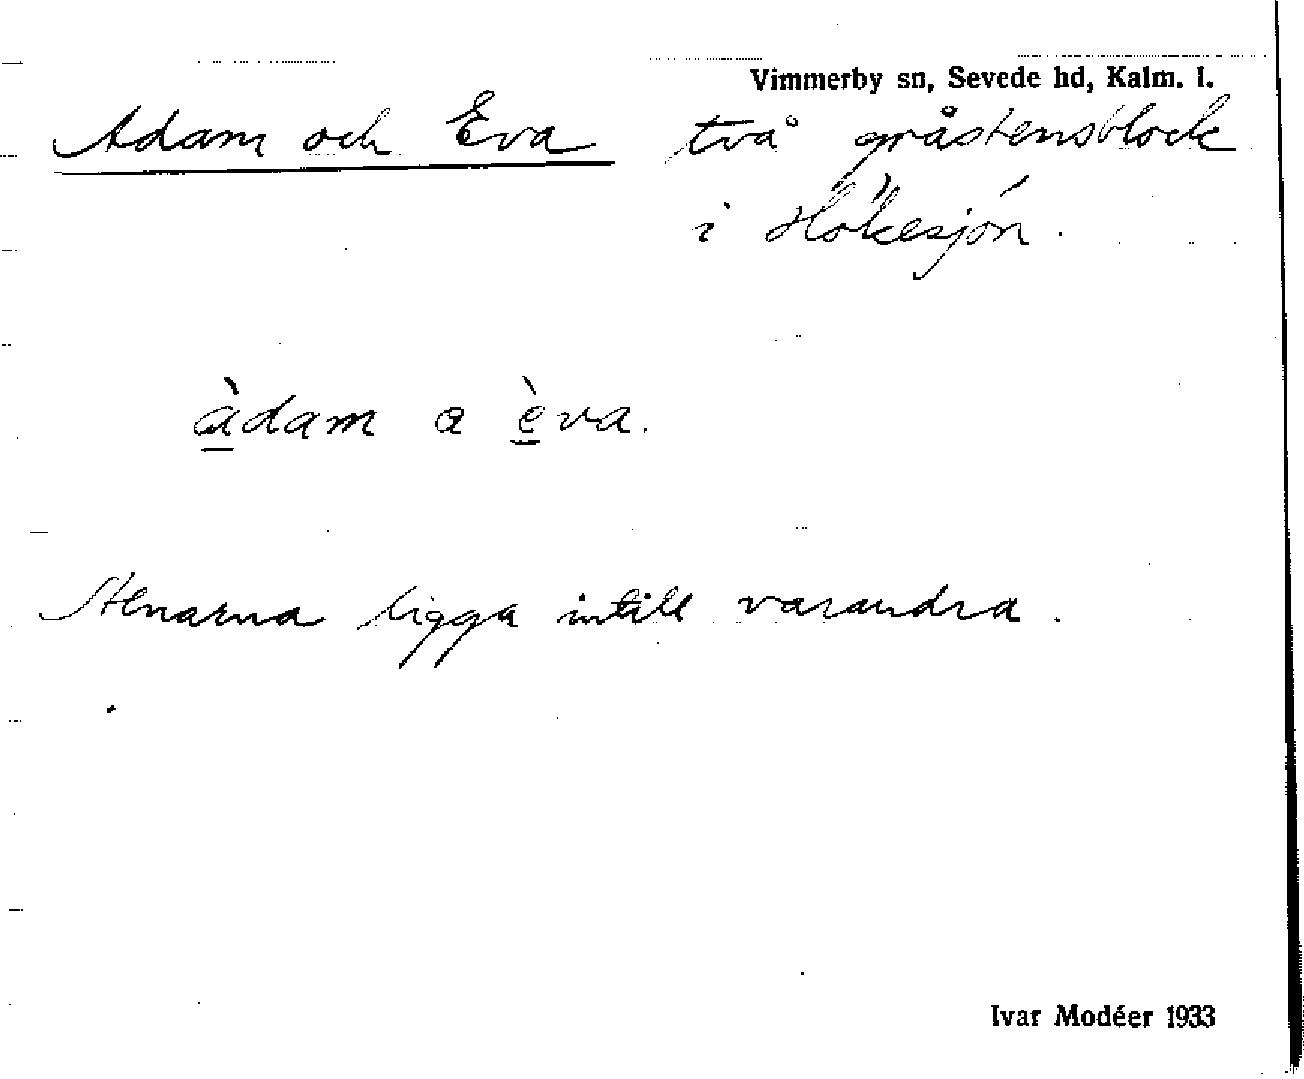 Vimmerby sn, Sevede hd, Kalm. l.
Adam och Eva två gråstensblock
i Hökesjön.
àdam a èva.
Stenarna ligga intill varandra.
Ivar Modéer 1933